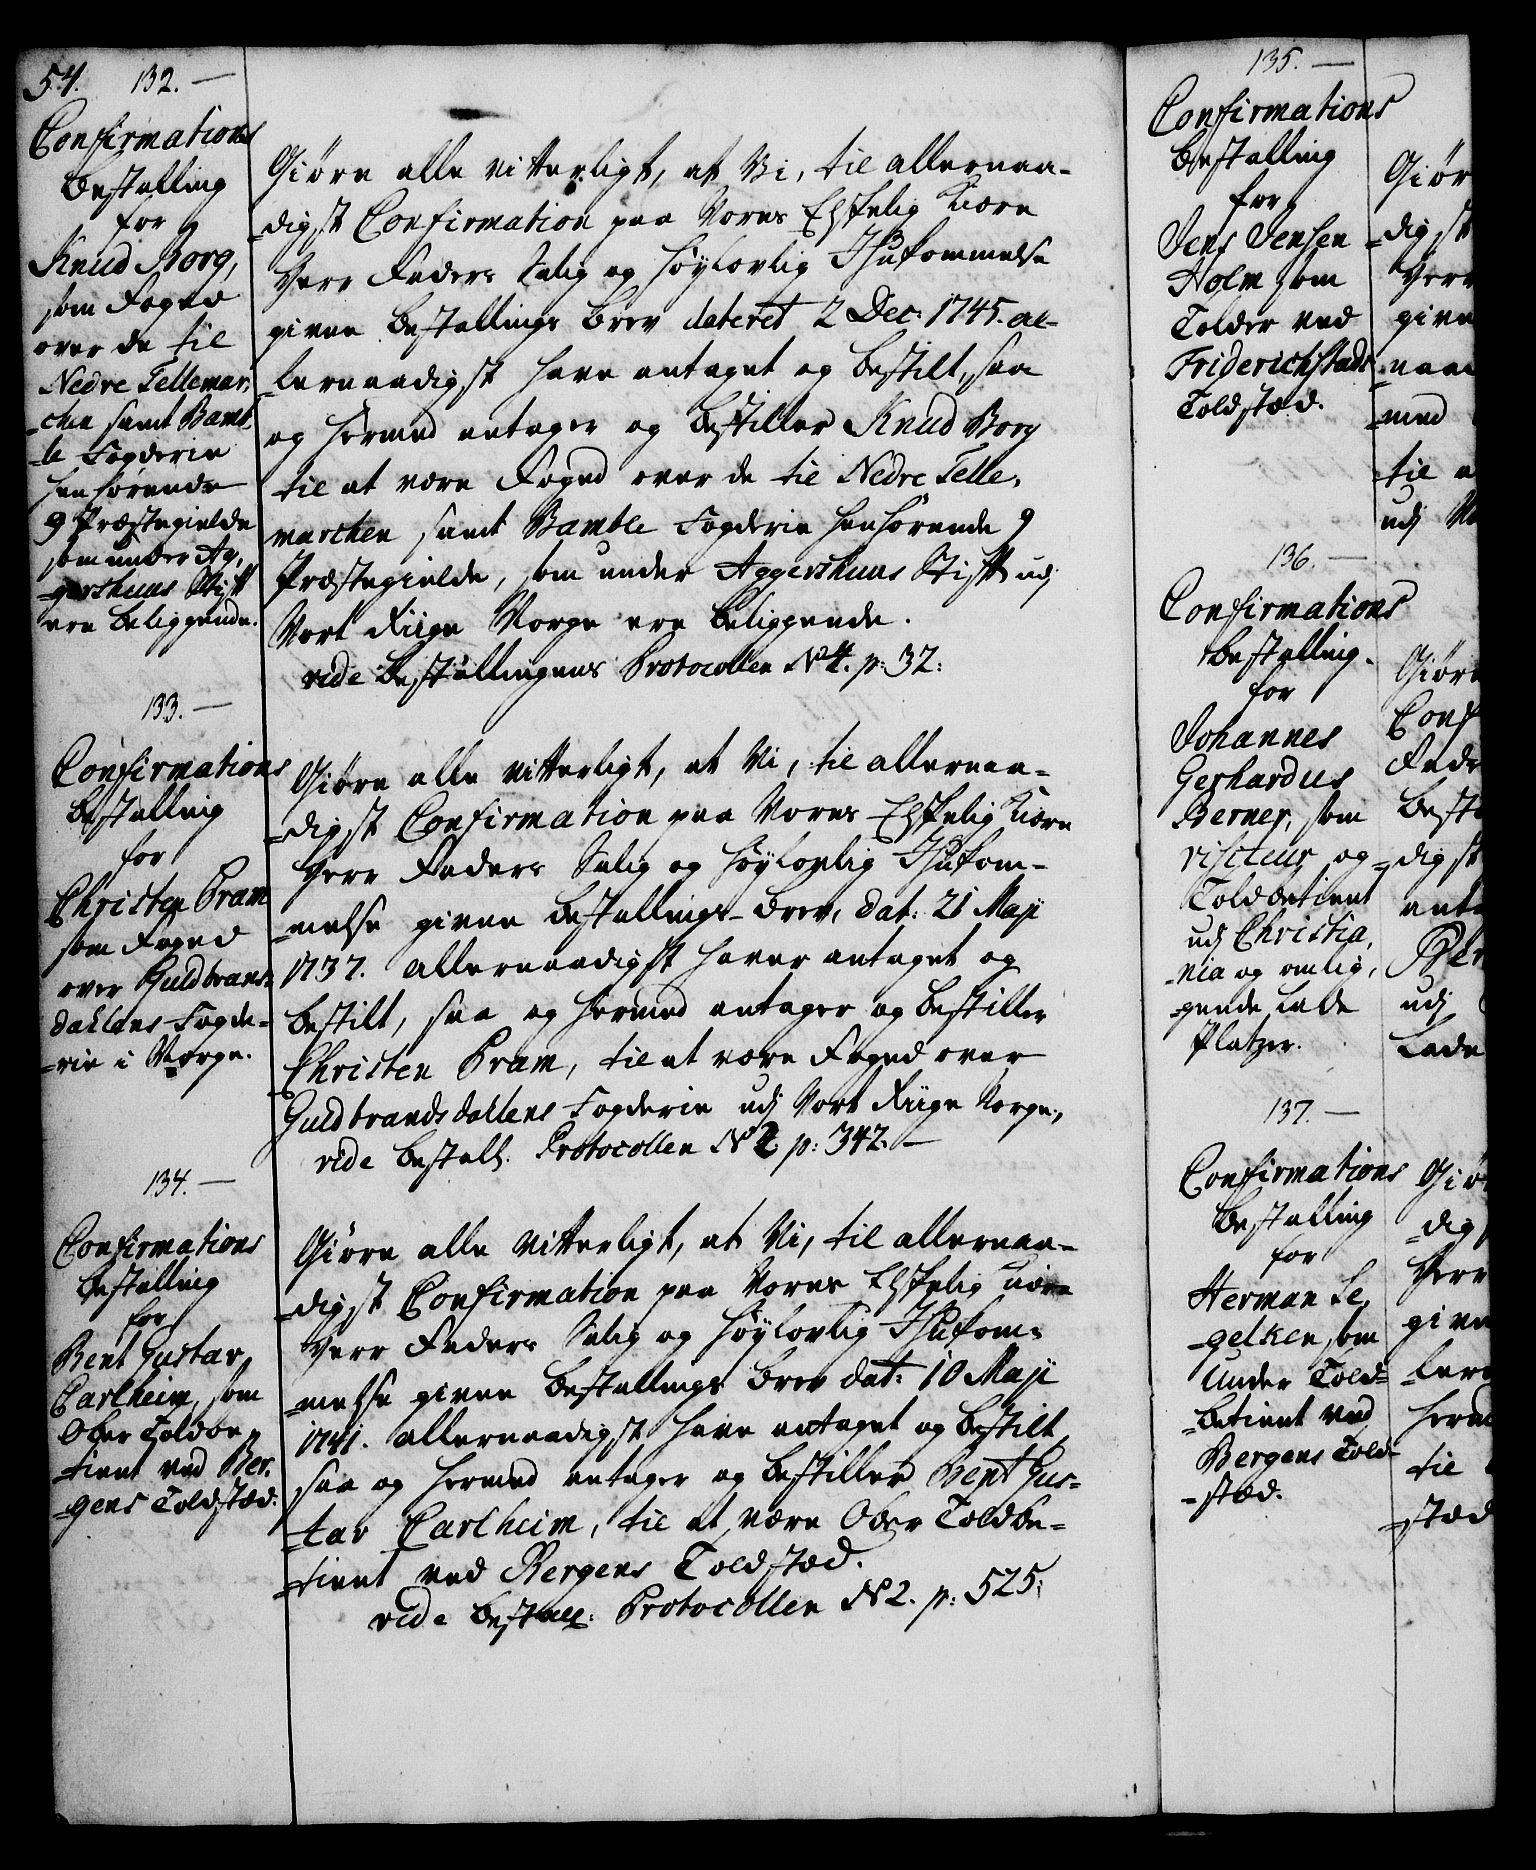 54. 132.—
Confirmations
Bestalling
for
Knud Borg,
som Foged
over de til
Nedre Tellemar,
-chen samt Bamb
-le Fogderie
henhörende
9 Præstegielde
som under Ag,
-gershuus Stift
ere beliggende.
Giöre alle vitterligt, at Vi, til allernaa-
-digst Confirmation paa Vores Elskelig Kiære
Herr Faders Salig og Höylovlig Ihukommelse
given Bestallings Brev dateret 2 Dec: 1745. al-
-lernaadigst have antaget og bestilt, saa
og hermed antager og bestiller Knud Borg
til at være Foged over de til Nedre Telle,
marchen samt Bamble Fogderie henhörende 9
Præstegielde, som under Aggershuus Stift udj
Vort Riige Norge ere beliggende.
vide Bestallingens Protocollen N 4. p: 32:
133.—
Confirmations
Bestalling
for
Christen Pram
som Foged
over Guldbrans-
dahlens Fogde-
-rie i Norge.
Giöre alle vitterligt, at Vi, til allernaa-
-digst Confirmation paa Vores Elskelig Kiære
Herr Faders Salig og Höylovlig Ihukom-
-melse given Bestallings-Brev, dat: 21 Maji
1737. allernaadigst haver antaget og
bestilt, saa og hermed antager og bestiller
Christen Pram, til at være Foged over
Guldbrandsdahlens Fogderie udj Vort Riige Norge,
vide Bestall. Protocollen N 2. p: 342.—
134.—
Confirmations
Bestalling
for
Bent Gustav
Carlheim, som
Ober Toldbe,
-tient ved Ber,
-gens Toldstæd.
Giöre alle vitterligt, at Vi, til allernaa-
-digst Confirmation paa Vores Elskelig Kiære
Herr Faders Salig og Höylovlig Ihukom-
-melse given Bestallings Brev dat: 10 Maji
1741. allernaadigst have antaget og bestilt,
saa og hermed antager og bestiller Bent Gus-
-tav Carlheim, til at være Ober Toldbe-
-tient ved Bergens Toldstæd.
vide Bestall: Protocollen N 2. p: 525:
135.—
Confirmations
Bestalling
for
Jens Jensen
Holm som
Tolder ved
Friderichstads
Toldstæd.
Giör
-digst
Herr
give
-naa
-med
til a
udj No
136.—
Confirmations
Bestalling.
for
Johannes
Gerhardus
Berner, som
visiteur og
Toldbetient
udj Christia,
-nia og omlig,
-gende Lade
Platzer.
Giöre
Conf
Fade
Besta
-digst
anta
Ber
udj
Lade
137.—
Confirmations
Bestalling
for
Herman Le,
-gelken, som
Under Told-
-betient ved
Bergens Told-
-stæd.
Giö
-dig
Herr
give
-lern
herm
til
-stæd